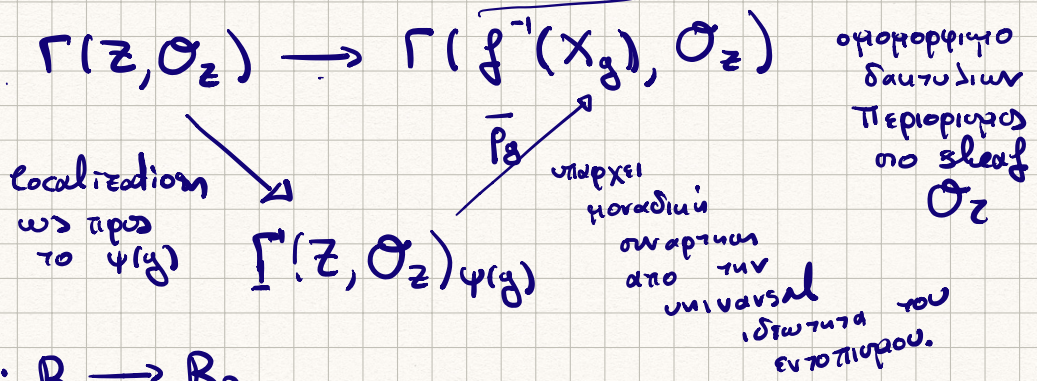 Γ(Z, O_Z) → Γ(f⁻¹(X_g), O_Z)
ομομορφισμο
δακτυλιων
περιορισμος
στο sheaf
O_Z
ρ̄_g
localization
ως προς
το ψ(g)
Γ(Z, O_Z)_ψ(g)
υπαρχει
μοναδικη
συναρτηση
απο την
universal
ιδιωτητα του
εντοπισμου.